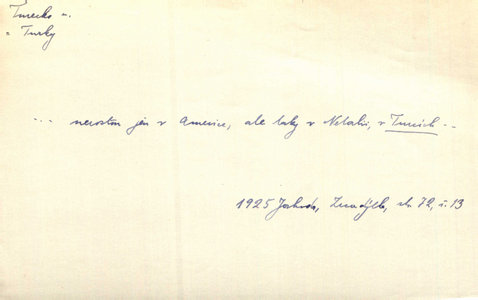 Turecko n.
" Turky
... nerostou jen v Americe, ale taky v Natalii, v Turcích ...
1925 Jahoda, str. 72, ř. 13